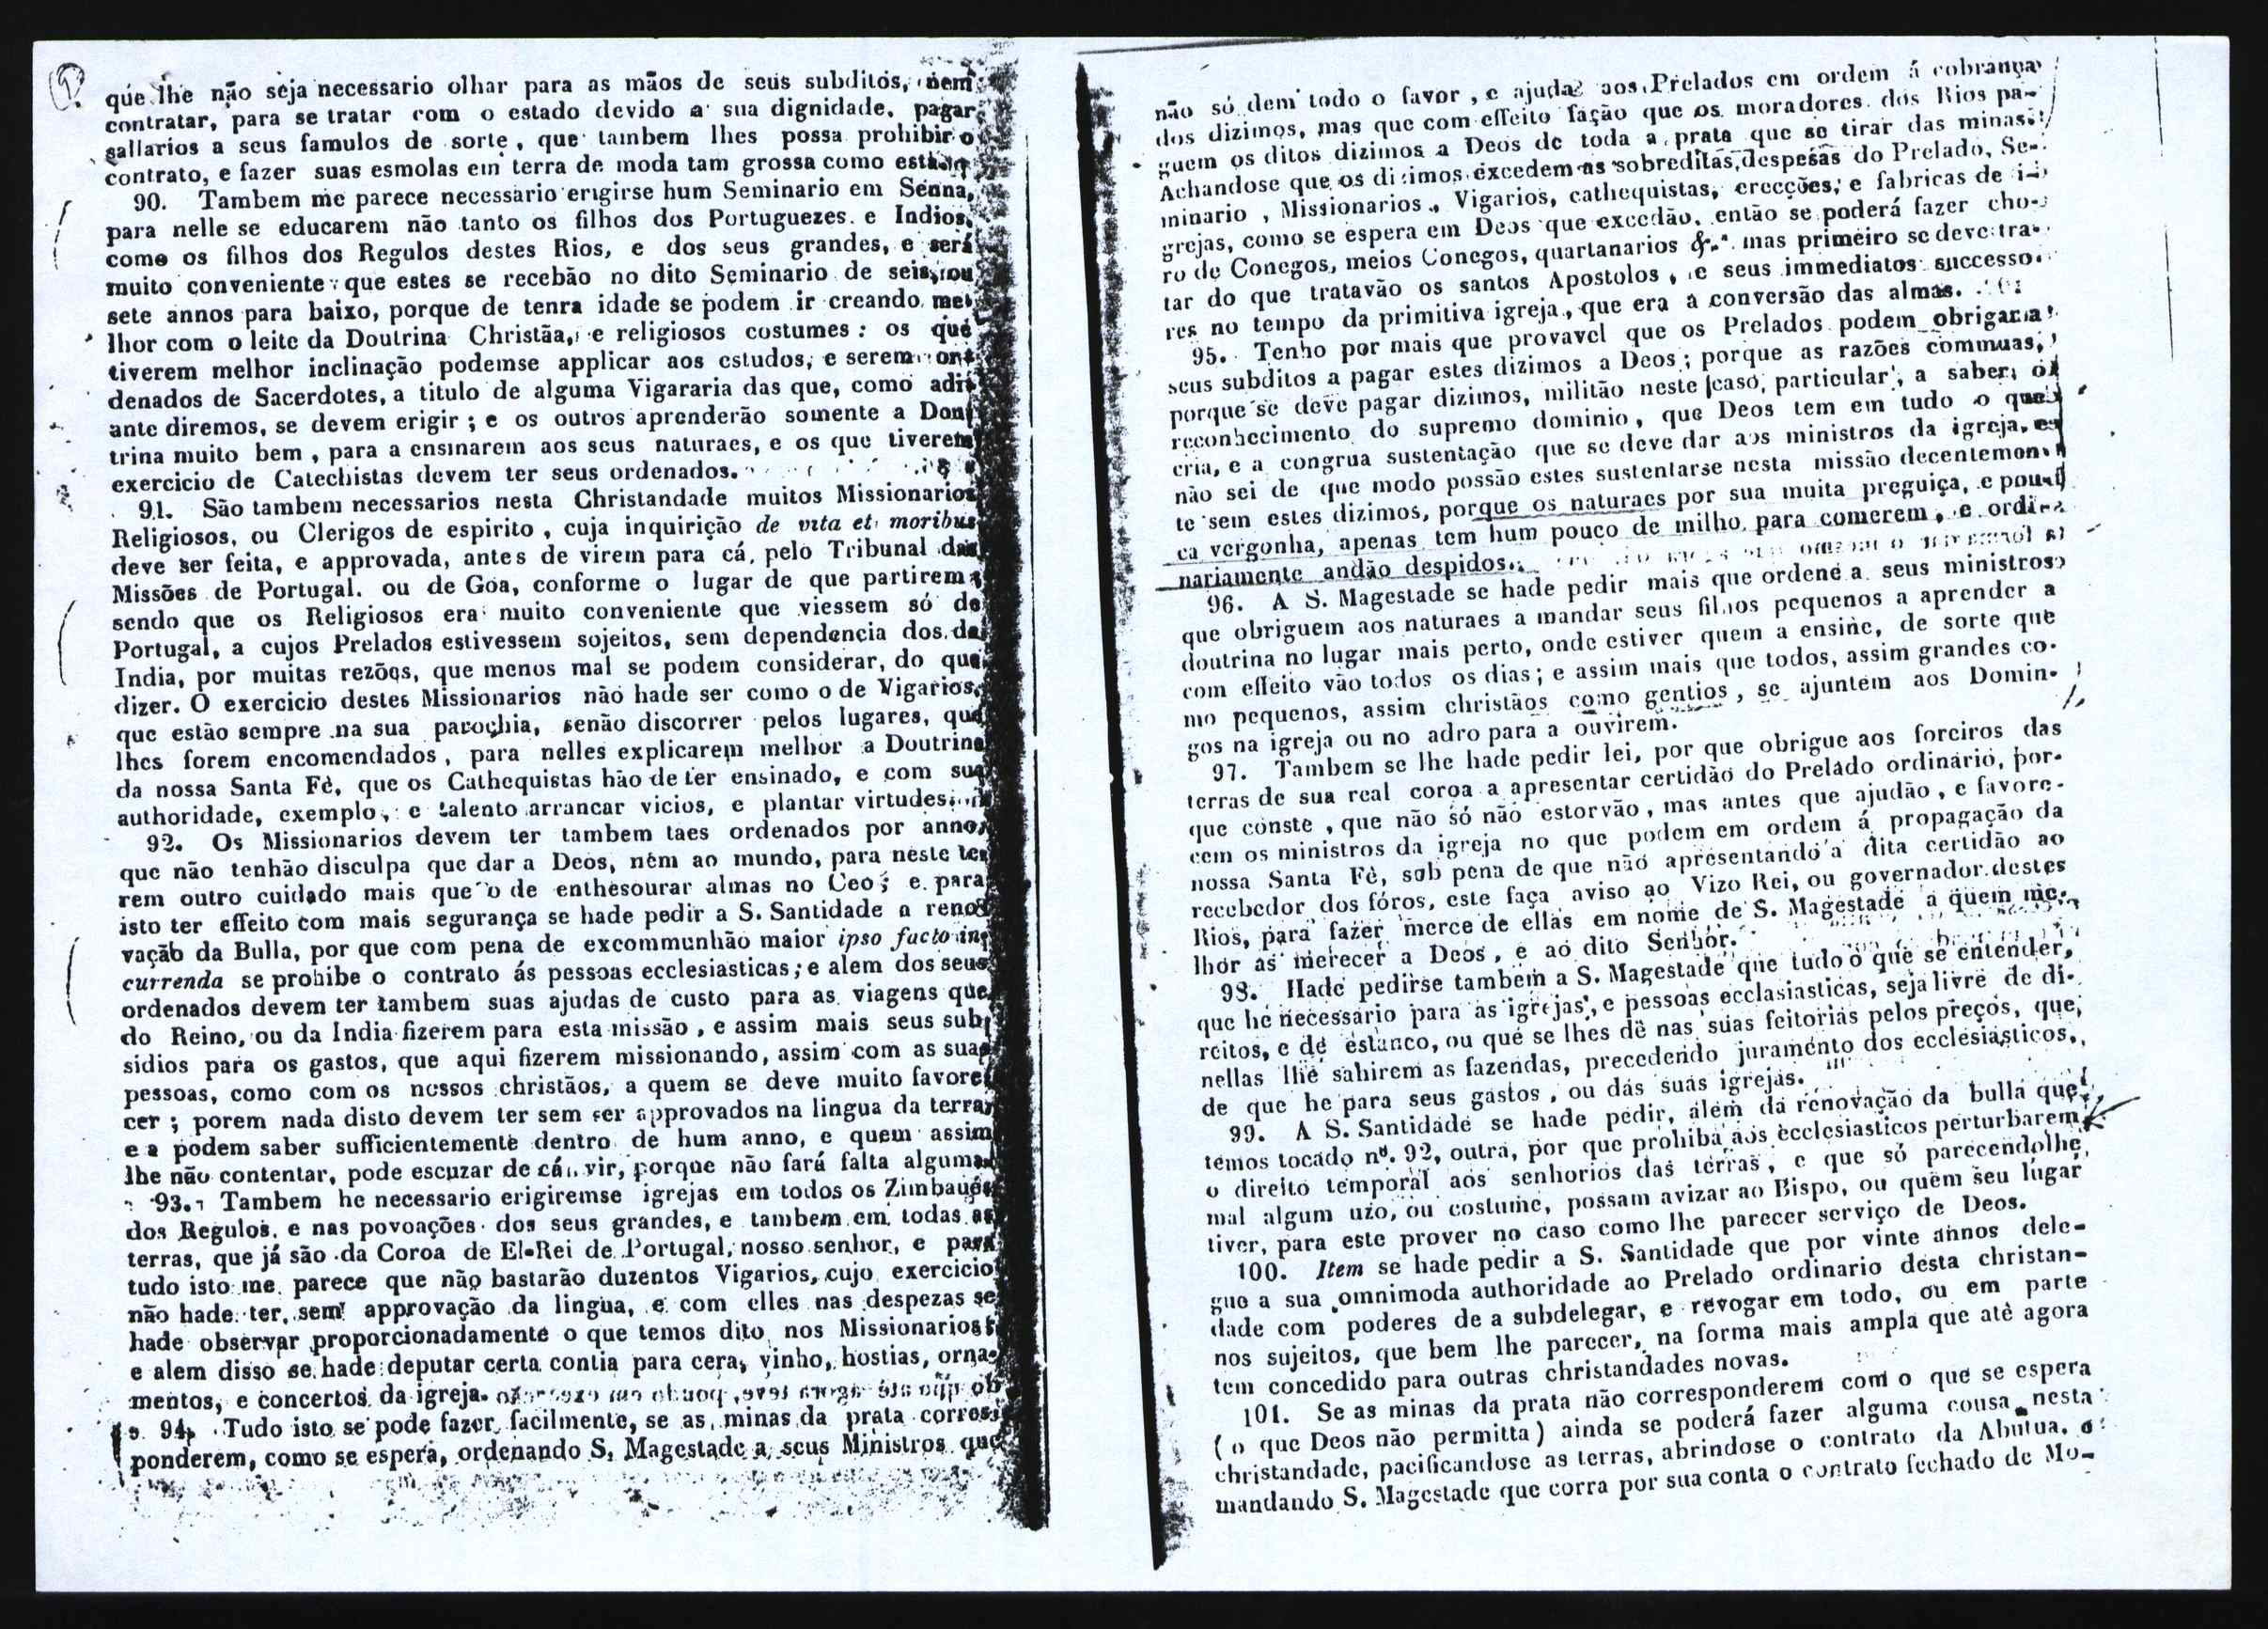 que lhe não seja necessario olhar para as mãos de seus subditos, nem
contratar, para se tratar com o estado devido a sua dignidade, pagar
sallarios a seus famulos de sorte, que tambem lhes possa prohibir o
contrato, e fazer suas esmolas em terra de moda tam grossa como esta
90. Tambem me parece necessario erigirse hum Seminario em Senna,
para nelle se educarem não tanto os filhos dos Portuguezes e Indios,
como os filhos dos Regulos destes Rios, e dos seus grandes, e será
muito conveniente que estes se recebão no dito Seminario de seis, ou
sete annos para baixo, porque de tenra idade se podem ir creando me-
lhor com o leite da Doutrina Christãa, e religiosos costumes: os que
tiverem melhor inclinação podemse applicar aos estudos, e serem or-
denados de Sacerdotes, a titulo de alguma Vigararia das que, como adi-
ante diremos, se devem erigir; e os outros aprenderão somente a Dou-
trina muito bem, para a ensinarem aos seus naturaes, e os que tiverem
exercicio de Catechistas devem ter seus ordenados.
91. São tambem necessarios nesta Christandade muitos Missionarios
Religiosos, ou Clerigos de espirito, cuja inquirição de vita et moribus
deve ser feita, e approvada, antes de virem para cá, pelo Tribunal das
Missões de Portugal. ou de Goa, conforme o lugar de que partirem;
sendo que os Religiosos era muito conveniente que viessem só de
Portugal, a cujos Prelados estivessem sojeitos, sem dependencia dos da
India, por muitas rezões, que menos mal se podem considerar, do que
dizer. O exercicio destes Missionarios não hade ser como o de Vigarios,
que estão sempre na sua parochia, senão discorrer pelos lugares, que
lhes forem encomendados, para nelles explicarem melhor a Doutrina
da nossa Santa Fè, que os Cathequistas hão de ter ensinado, e com sua
authoridade, exemplo, e talento arrancar vicios, e plantar virtudes.
92. Os Missionarios devem ter tambem taes ordenados por anno,
que não tenhão disculpa que dar a Deos, nem ao mundo, para neste te-
rem outro cuidado mais que o de enthesourar almas no Ceo; e para
isto ter effeito com mais segurança se hade pedir a S. Santidade a reno-
vação da Bulla, por que com pena de excommunhão maior ipso facto in-
currenda se prohibe o contrato ás pessoas ecclesiasticas; e alem dos seus
ordenados devem ter tambem suas ajudas de custo para as viagens que
do Reino, ou da India fizerem para esta missão, e assim mais seus sub-
sidios para os gastos, que aqui fizerem missionando, assim com as suas
pessoas, como com os nossos christãos, a quem se deve muito favore-
cer; porem nada disto devem ter sem ser approvados na lingua da terra,
e a podem saber sufficientemente dentro de hum anno, e quem assim
lhe não contentar, pode escuzar de cá vir, porque não fará falta alguma.
93. Tambem he necessario erigiremse igrejas em todos os Zimbaués
dos Regulos, e nas povoações dos seus grandes, e tambem em todas as
terras, que já são da Coroa de El-Rei de Portugal, nosso senhor, e para
tudo isto me parece que não bastarão duzentos Vigarios, cujo exercicio
não hade ter, sem approvação da lingua, e com elles nas despezas se
hade observar proporcionadamente o que temos dito nos Missionarios;
e alem disso se hade deputar certa contia para cera, vinho, hostias, orna-
mentos, e concertos da igreja.
94. Tudo isto se pode fazer facilmente, se as minas da prata corres-
ponderem, como se espera, ordenando S. Magestade a seus Ministros que
não só dem todo o favor, e ajuda aos Prelados em ordem á cobrança
dos dizimos, mas que com effeito fação que os moradores dos Rios pa-
guem os ditos dizimos a Deos de toda a prata que se tirar das minas:
Achandose que os dizimos excedem as sobreditas despesas do Prelado, Se-
minario, Missionarios, Vigarios, cathequistas, erecções, e fabricas de i-
grejas, como se espera em Deos que excedão, então se poderá fazer cho-
ro de Conegos, meios Conegos, quartanarios &.ª mas primeiro se deve tra-
tar do que tratavão os santos Apostolos, e seus immediatos successo-
res no tempo da primitiva igreja, que era a conversão das almas.
95. Tenho por mais que provavel que os Prelados podem obrigar a
seus subditos a pagar estes dizimos a Deos; porque as razões commuas,
porque se deve pagar dizimos, militão neste caso particular, a saber, o
reconhecimento do supremo dominio, que Deos tem em tudo o que
cria, e a congrua sustentação que se deve dar aos ministros da igreja, e
não sei de que modo possão estes sustentarse nesta missão decentemen-
te sem estes dizimos, porque os naturaes por sua muita preguiça, e pou-
ca vergonha, apenas tem hum pouco de milho para comerem, e ordi-
nariamente andão despidos.
96. A S. Magestade se hade pedir mais que ordene a seus ministros
que obriguem aos naturaes a mandar seus filhos pequenos a aprender a
doutrina no lugar mais perto, onde estiver quem a ensine, de sorte que
com effeito vão todos os dias; e assim mais que todos, assim grandes co-
mo pequenos, assim christãos como gentios, se ajuntem aos Domin-
gos na igreja ou no adro para a ouvirem.
97. Tambem se lhe hade pedir lei, por que obrigue aos foreiros das
terras de sua real coroa a apresentar certidão do Prelado ordinario, por-
que conste, que não só não estorvão, mas antes que ajudão, e favore-
cem os ministros da igreja no que podem em ordem á propagação da
nossa Santa Fè, sob pena de que não apresentando a dita certidão ao
recebedor dos fóros, este faça aviso ao Vizo Rei, ou governador destes
Rios, para fazer merce de ellas em nome de S. Magestade a quem me-
lhor as merecer a Deos, e ao dito Senhor.
98. Hade pedirse tambem a S. Magestade que tudo o que se entender,
que he necessario para as igrejas, e pessoas ecclasiasticas, seja livre de di-
reitos, e de estanco, ou que se lhes dê nas suas feitorias pelos preços, que
nellas lhe sahirem as fazendas, precedendo juramento dos ecclesiasticos,
de que he para seus gastos, ou das suas igrejas.
99. A S. Santidade se hade pedir, alem da renovação da bulla que
temos tocado nº. 92, outra, por que prohiba aos ecclesiasticos perturbarem
o direito temporal aos senhorios das terras, e que só parecendolhe
mal algum uzo, ou costume, possam avizar ao Bispo, ou quem seu lugar
tiver, para este prover no caso como lhe parecer serviço de Deos.
100. Item se hade pedir a S. Santidade que por vinte annos dele-
gue a sua omnimoda authoridade ao Prelado ordinario desta christan-
dade com poderes de a subdelegar, e revogar em todo, ou em parte
nos sujeitos, que bem lhe parecer, na forma mais ampla que atè agora
tem concedido para outras christandades novas.
101. Se as minas da prata não corresponderem com o que se espera
(o que Deos não permitta) ainda se poderá fazer alguma cousa nesta
christandade, pacificandose as terras, abrindose o contrato da Abutua, e
mandando S. Magestade que corra por sua conta o contrato fechado de Mo-